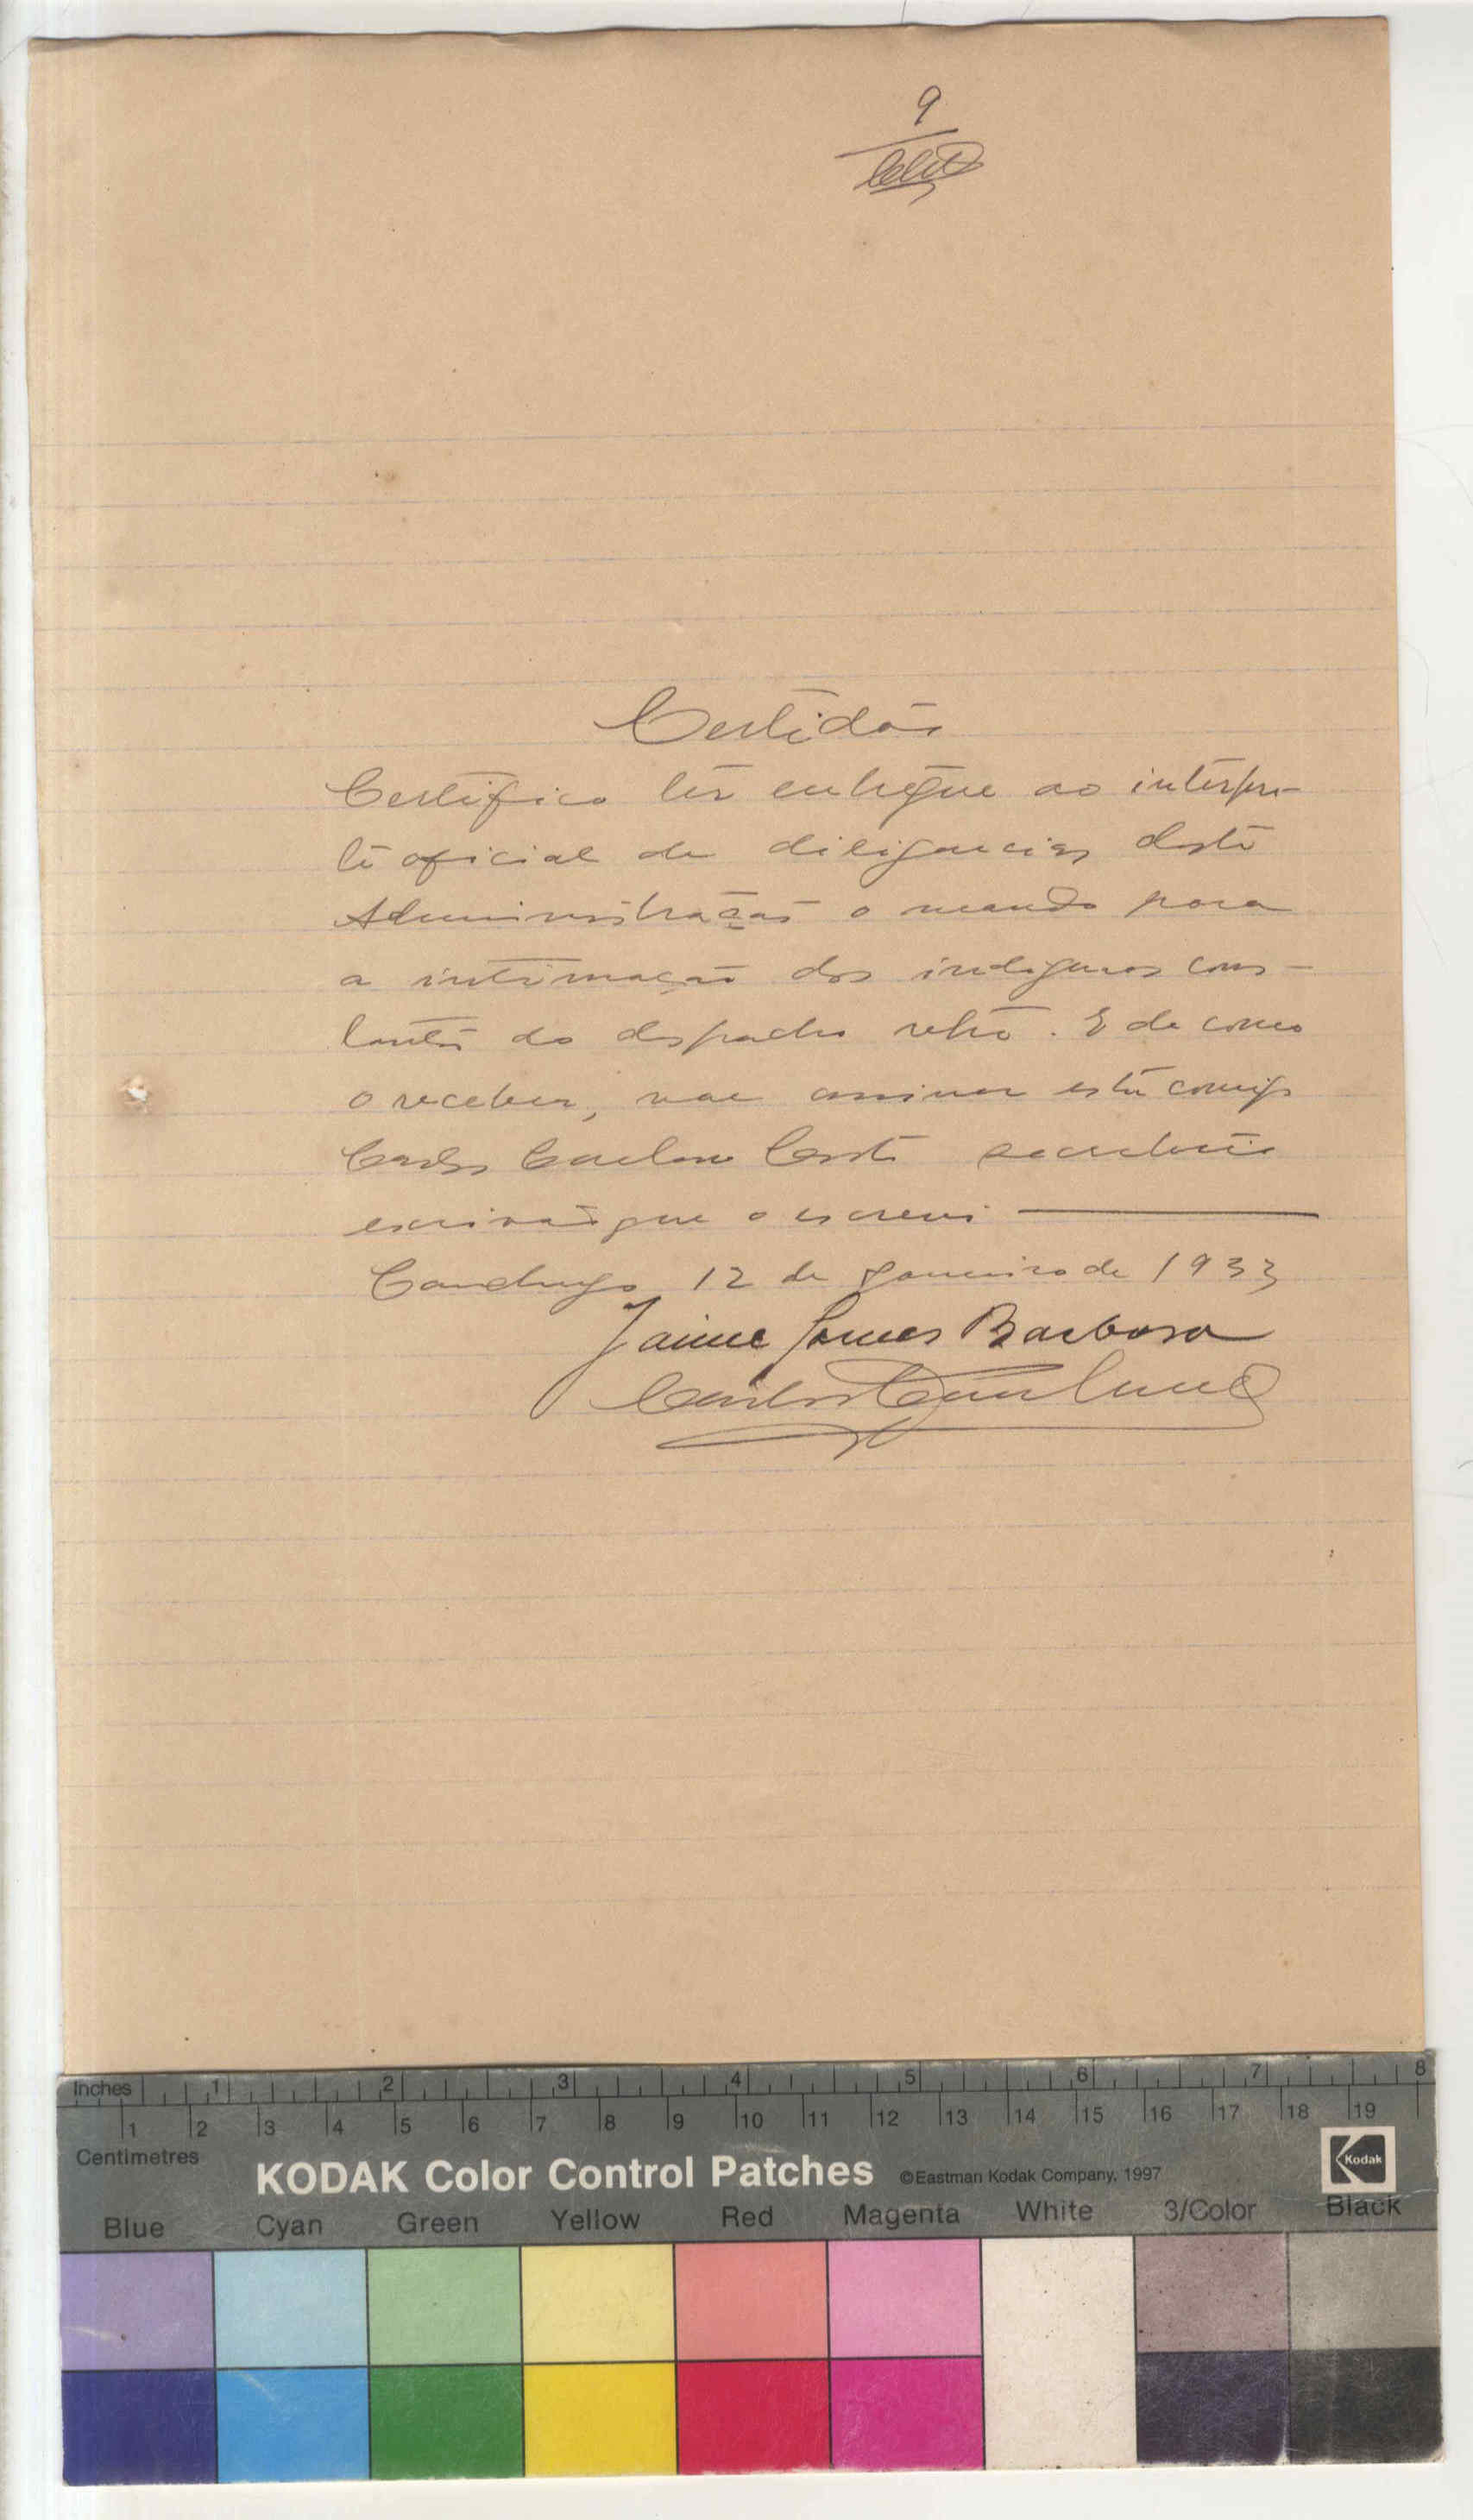 9
Certidão
Certifico ter entregue ao interpre-
te oficial de diligencias desta
Administração o mando para
a intimação dos indigenas cons-
tantes do despacho retro. E de como
o recebeu, vae assinar esta comigo
Carlos Costa secretario
escrivão que o escrevi
12 de Janeiro de 1933
Jaime Gomes Barbosa
Carlos
Inches 1 2 3 4 5 6 7 8
1 2 3 4 5 6 7 8 9 10 11 12 13 14 15 16 17 18 19
Centimetres
KODAK Color Control Patches ©Eastman Kodak Company, 1997 Kodak
Blue Cyan Green Yellow Red Magenta White 3/Color Black